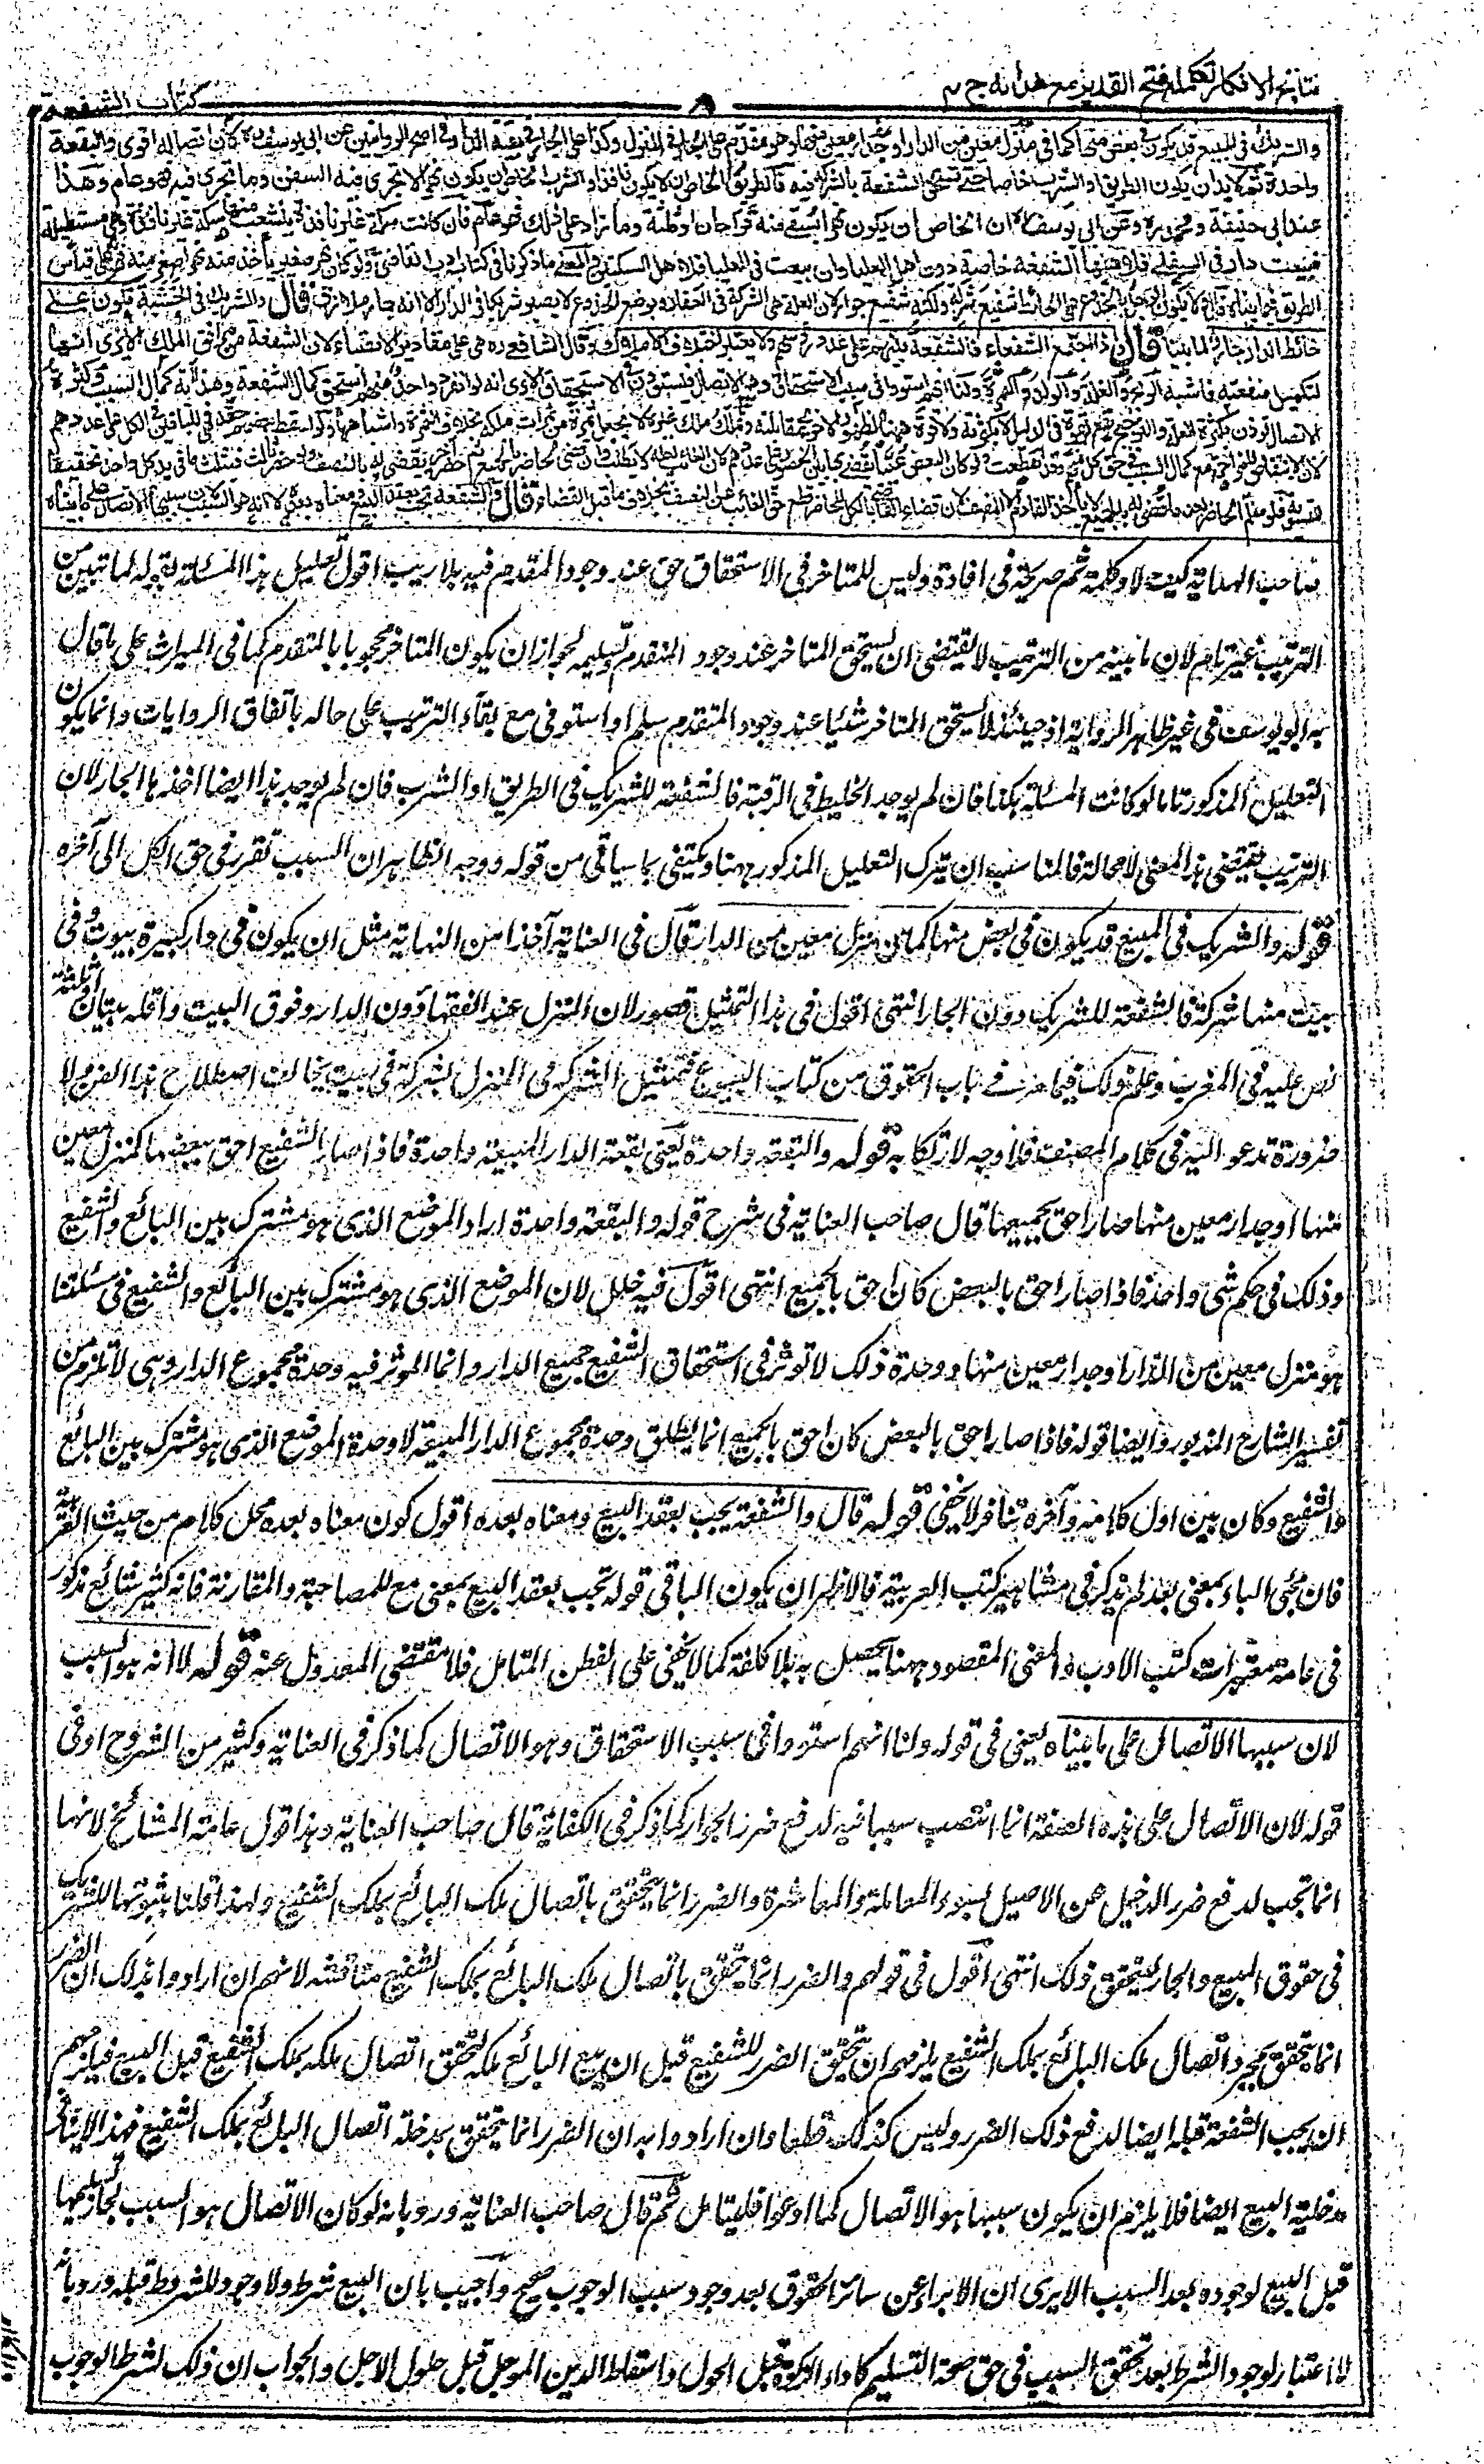 نتایج الافکار تکملہ فتح القدیر مع ھدایہ ج ۴
۸
کتاب الشفعة
والشريك فی المبيع قد يكون فی بعض منها كما فی منزل معين من الدار او جدار معين منها وهو مقدم علی الجار فی المنزل وكذا علی الجار فی بقية الدار فی اصح الروايتين عن ابی يوسف لان اتصاله اقوی والبقعة
واحدة ثم لابد ان يكون الطريق او الشرب خاصا حتی تستحق الشفعة بالشركة فيه فالطريق الخاص ان لا يكون نافذا والشرب الخاص ان يكون نهرا لا تجری فيه السفن وما تجری فيه فهو عام وهذا
عند ابی حنيفة ومحمد وعن ابی يوسف ان الخاص ان يكون نهرا يسقی منه قراحان او ثلثة وما زاد علی ذلك فهو عام فان كانت سكة غير نافذة ينشعب منها سكة غير نافذة وهی مستطيلة
فبيعت دار فی السفلی فلاهلها الشفعة خاصة دون اهل العليا وان بيعت فی العليا فلاهل السكتين والمعنی ما ذكرنا فی كتاب ادب القاضی ولو كان نهر صغير يأخذ منه نهر اصغر منه فهو علی قياس
الطريق فيما بيناه قال ولا يكون الرجل بالجذوع علی الحائط شفيع شركة ولكنه شفيع جوار لان العلة هی الشركة فی العقار وبوضع الجذوع لا يصير شريكا فی الدار الا انه جار ملازق قال والشريك فی الخشبة تكون علی
حائط الدار جار لما بينا قال واذا اجتمع الشفعاء فالشفعة بينهم علی عدد رؤسهم ولا يعتبر اختلاف الاملاك وقال الشافعی ره هی علی مقادير الانصباء لان الشفعة من مرافق الملك الا يری انها
لتكميل منفعته فاشبه الربح والغلة والولد والثمرة ولنا انهم استووا فی سبب الاستحقاق وهو الاتصال فيستوون فی الاستحقاق الا يری انه لو انفرد واحد منهم استحق كمال الشفعة وهذا آية كمال السبب وكثرة
الاتصال تؤذن بكثرة العلة والترجيح يقع بقوة فی الدليل لا بكثرته ولا قوة ههنا لظهور الاخری بمقابلته وتملك ملك غيره لا يجعل ثمرة من ثمرات ملكه بخلاف الثمرة واشباهها ولو اسقط بعضهم حقه فهی للباقين فی الكل علی عددهم
لان الانتقاص للمزاحمة مع كمال السبب فی حق كل منهم وقد انقطعت ولو كان البعض غيبا يقضی بها بين الحضور علی عددهم لان الغائب لعله لا يطلب وان قضی لحاضر بالجميع ثم حضر آخر يقضی له بالنصف ولو حضر ثالث فبثلث ما فی يد كل واحد تحقيقا
للتسوية فلو سلم الحاضر بعد ما قضی له بالجميع لا يأخذ القادم الا النصف لان قضاء القاضی بالكل للحاضر قطع حق الغائب عن النصف بخلاف ما قبل القضاء قال والشفعة تجب بعقد البيع ومعناه بعده لا انه هو السبب لان سببها الاتصال علی ما بيناه
صاحب الهداية كيف لا وكلمة ثم صريحة فی افادة وليس للمتاخر فی الاستحقاق حق عند وجود المقدم فيه بلا ريب اقول تعليل هذا المسئلة بقوله لما تبين من
الترتيب غير تام لان ما بينه من الترتيب لا يقتضی ان يستحق المتاخر عند وجود المتقدم وتسليمه لجواز ان يكون المتاخر محجوبا بالمتقدم كما فی الميراث علی ما قال
به ابو يوسف فی غير ظاهر الرواية اذ حينئذ لا يستحق المتاخر شيئا عند وجود المتقدم سلم او استوفی مع بقاء الترتيب علی حاله باتفاق الروايات وانما يكون
التعليل المذكور تاما لو كانت المسئلة هكذا فان لم يوجد الخليط فی الرقبة فالشفعة للشريك فی الطريق او الشرب فان لم يوجد هذا ايضا اخذها الجار لان
الترتيب يقتضی هذا المعنی لا محالة فالمناسب ان يترك التعليل المذكور ههنا ويكتفی بما سياتی من قوله ووجه الظاهر ان السبب تقرر فی حق الكل الی آخره
قوله والشريك فی المبيع قد يكون فی بعض منها كما فی منزل معين من الدار قال فی العناية آخذا من النهاية مثل ان يكون فی دار كبيرة بيوت وفی
بيت منها شركة فالشفعة للشريك دون الجار انتهی اقول فی هذا التمثيل قصور لان المنزل عند الفقهاء دون الدار وفوق البيت واقله بيتان او ثلثة
نص عليه فی المغرب وعلم ذلك فيما مر فی باب الحقوق من كتاب البيوع فتمثيل الشركة فی المنزل بشركة فی بيت يخالف اصطلاح هذا الفن ولا
ضرورة تدعو اليه فی كلام المصنف فلا وجه لارتكابه قوله والبقعة واحدة يعنی بقعة الدار المبيعة واحدة فاذا صار الشفيع احق ببعضها كمنزل معين
منها او جدار معين منها صار احق بجميعها قال صاحب العناية فی شرح قوله والبقعة واحدة اراد الموضع الذی هو مشترك بين البائع والشفيع
وذلك فی حكم شیء واحد فاذا صار احق بالبعض كان احق بالجميع انتهی اقول فيه خلل لان الموضع الذی هو مشترك بين البائع والشفيع فی مسئلتنا
هو منزل معين من الدار او جدار معين منها ووحدة ذلك لا تؤثر فی استحقاق الشفيع جميع الدار وانما المؤثر فيه وحدة مجموع الدار وهی لا تلزم من
تفسير الشارح المذبور وايضا قوله فاذا صار احق بالبعض كان احق بالجميع انما يطلق وحدة مجموع الدار المبيعة لا وحدة الموضع الذی هو مشترك بين البائع
والشفيع وكان بين اول كلامه وآخره تنافر لا يخفی قوله قال والشفعة يجب بعقد البيع ومعناه بعده اقول كون معناه بعده محل كلام من حيث العربية
فان مجئ الباء بمعنی بعد لم يذكر فی مشاهير كتب العربية فالاظهر ان يكون الباء فی قوله تجب بعقد البيع بمعنی مع للمصاحبة والمقارنة فانه كثير شائع مذكور
فی عامة معتبرات كتب الادب والمعنی المقصود ههنا يحصل به بلا كلفة كما لا يخفی علی الفطن المتامل فلا مقتضی للعدول عنه قوله لا انه هو السبب
لان سببها الاتصال علی ما بيناه يعنی فی قوله ولنا انهم استووا فی سبب الاستحقاق وهو الاتصال كما ذكر فی العناية وكثير من الشروح او فی
قوله لان الاتصال علی هذه الصفة انما انتصب سببا فيه لدفع ضرر الجوار كما ذكر فی الكفاية قال صاحب العناية وهذا قول عامة المشائخ لانها
انما تجب لدفع ضرر الدخيل عن الاصيل بسوء المعاملة والمعاشرة والضرر انما يتحقق باتصال ملك البائع بملك الشفيع ولهذا قلنا بثبوتها للشريك
فی حقوق المبيع والجار لتحقق ذلك انتهی اقول فی قولهم والضرر انما يتحقق باتصال ملك البائع بملك الشفيع مناقشة لانهم ان ارادوا بذلك ان الضرر
انما يتحقق بمجرد اتصال ملك البائع بملك الشفيع يلزمهم ان يتحقق الضرر للشفيع قبل ان يبيع البائع ملكه لتحقق اتصال ملكه بملك الشفيع قبل البيع فيلزمهم
ان يجب الشفعة قبله ايضا لدفع ذلك الضرر وليس كذلك قطعا وان ارادوا به ان الضرر انما يتحقق بمدخلة اتصال البائع بملك الشفيع فهذا لا ينافی
مدخلية البيع ايضا فلا يلزم ان يكون سببها هو الاتصال كما ادعوا فليتامل ثم قال صاحب العناية ورد بانه لو كان الاتصال هو السبب لجاز تسليمها
قبل البيع لوجوده بعد السبب الا يری ان الابراء عن سائر الحقوق بعد وجود سبب الوجوب صحيح واجيب بان البيع شرط ولا وجود للمشروط قبله ورد بانه
لا اعتبار لوجود الشرط بعد تحقق السبب فی حق صحة التسليم كاداء الزكوة قبل الحول واسقاط الدين المؤجل قبل حلول الاجل والجواب ان ذلك لشرط الوجوب